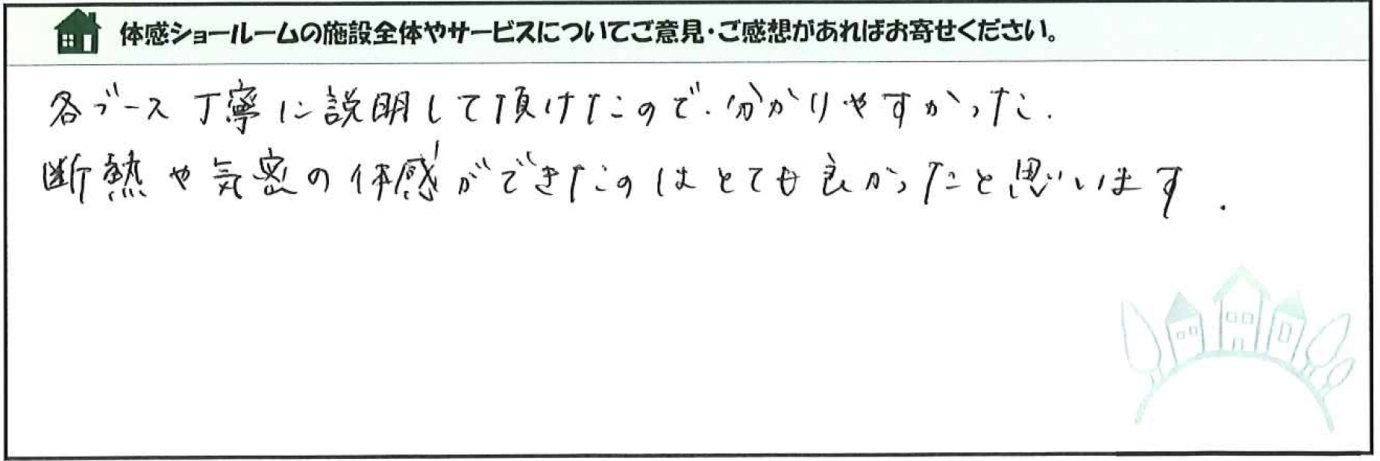 体感ショールームの施設全体やサービスについてご意見・ご感想があればお寄せください。
各ブース丁寧に説明して頂けたので、分かりやすかった.
断熱や気密の体感ができたのはとても良かったと思います.